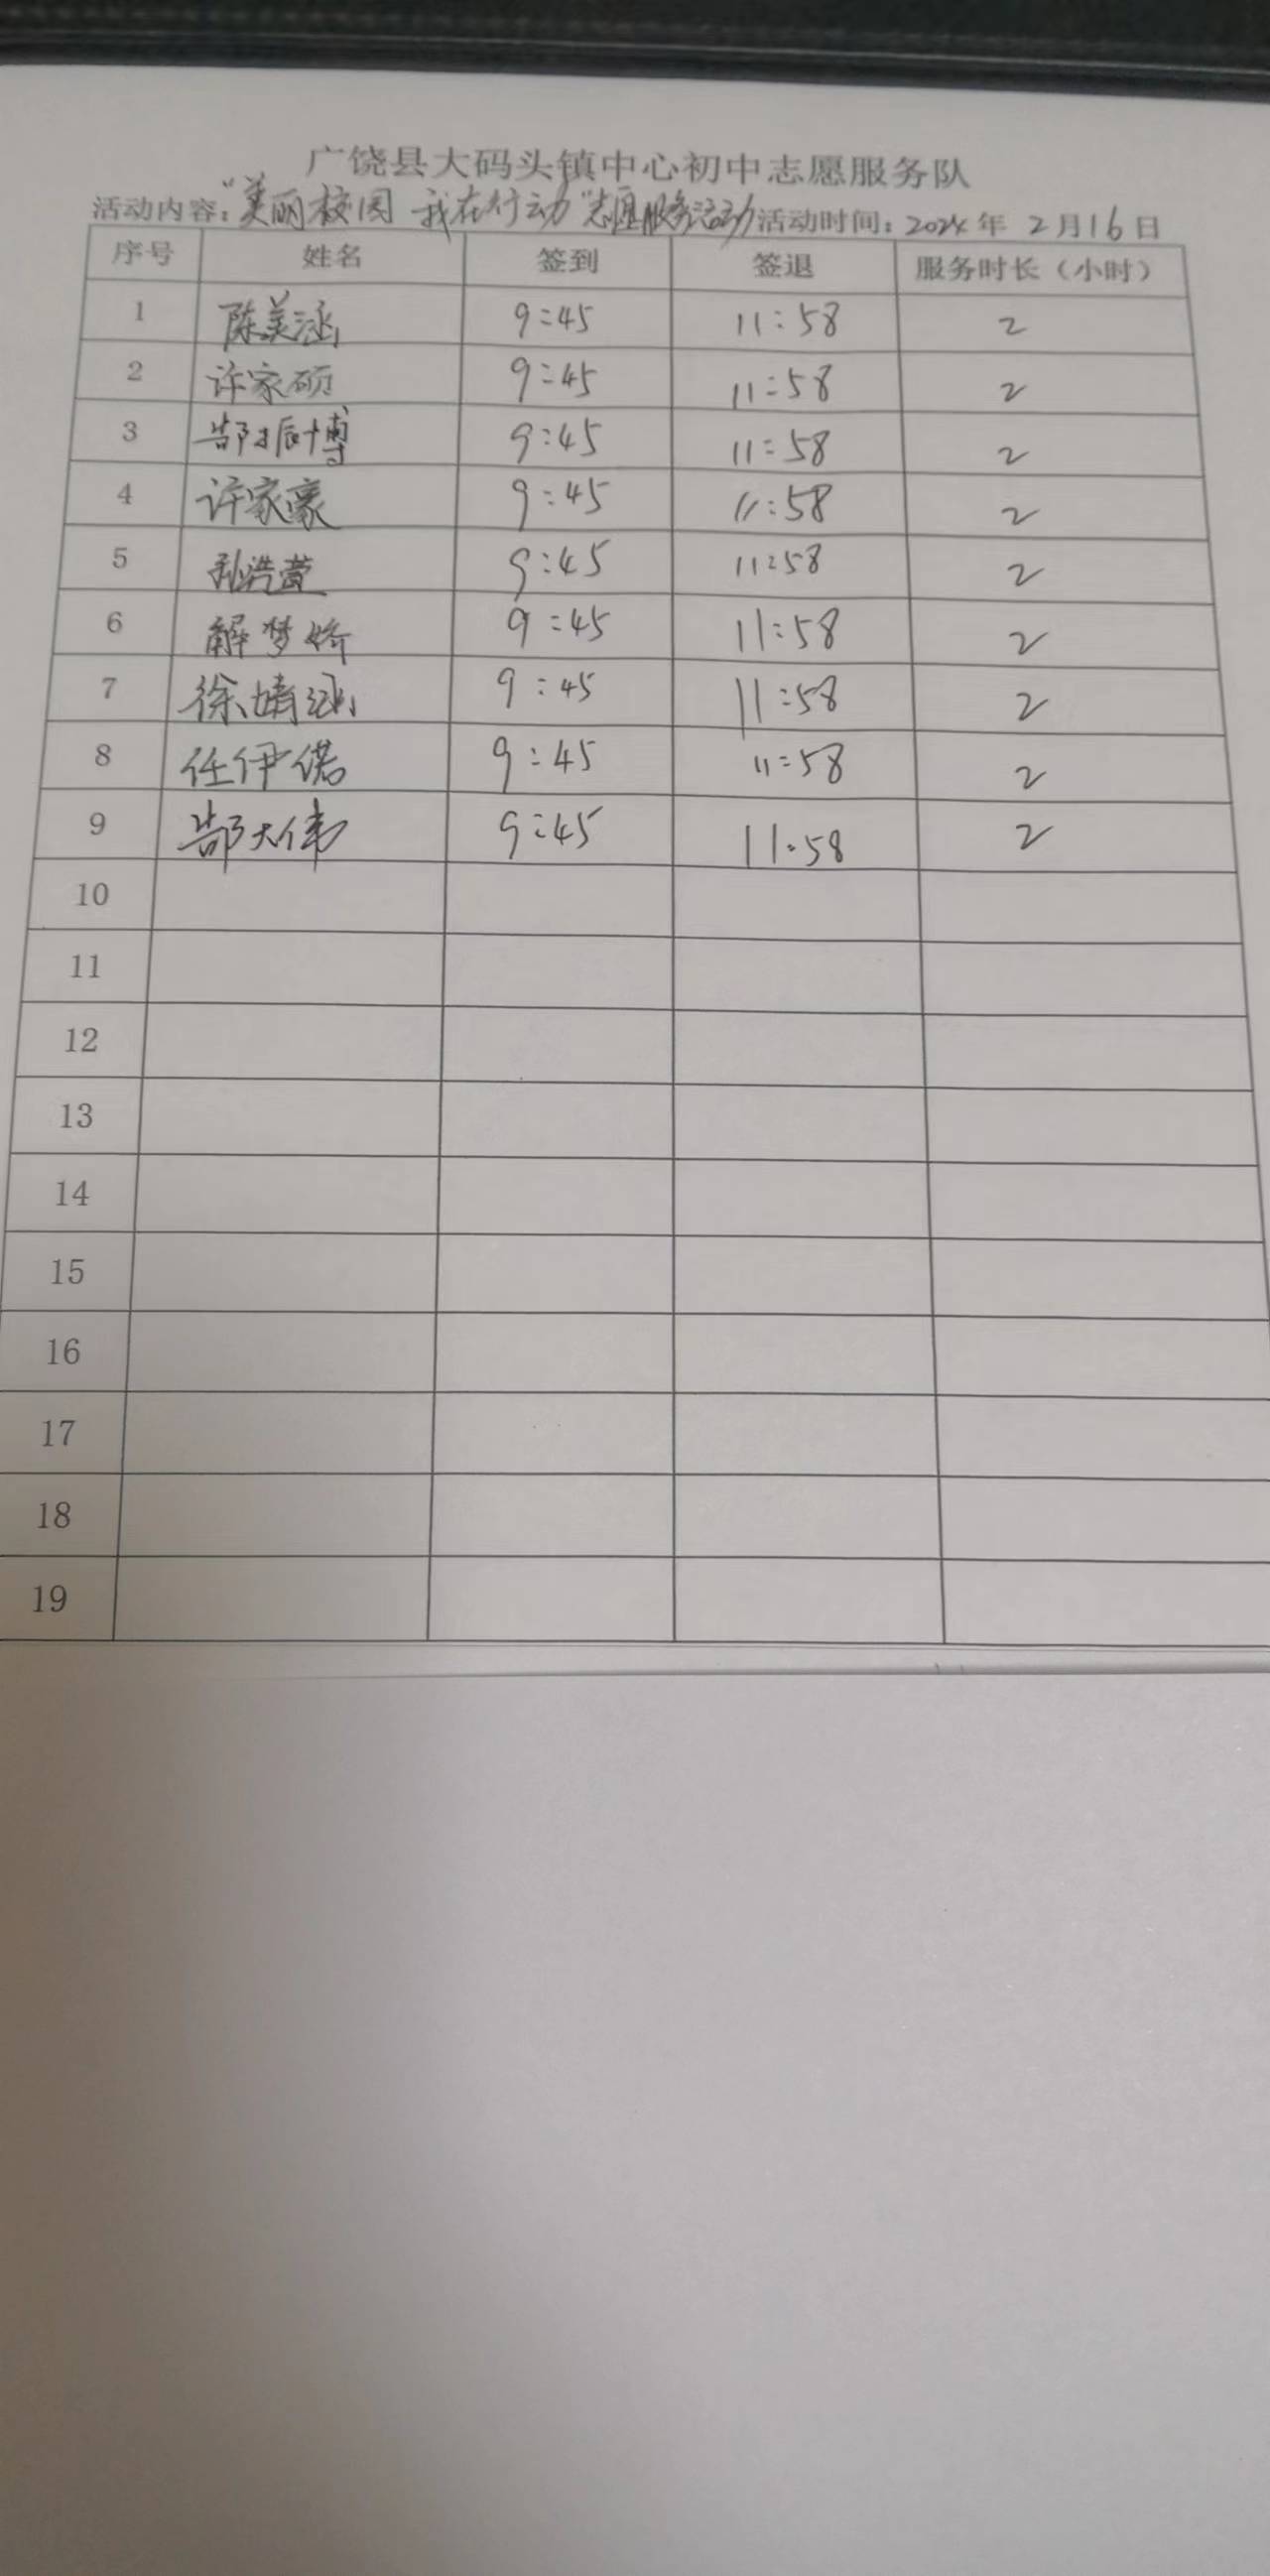 广饶县大码头镇中心初中志愿服务队
活动内容：“美丽校园 我在行动”志愿服务活动 活动时间：2024年 2月16日
序号 姓名 签到 签退 服务时长（小时）
1 陈美涵 9:45 11:58 2
2 许家硕 9:45 11:58 2
3 郜振博 9:45 11:58 2
4 许家豪 9:45 11:58 2
5 孙浩萱 9:45 11:58 2
6 解梦娇 9:45 11:58 2
7 徐婧涵 9:45 11:58 2
8 任伊诺 9:45 11:58 2
9 郜大伟 9:45 11:58 2
10
11
12
13
14
15
16
17
18
19